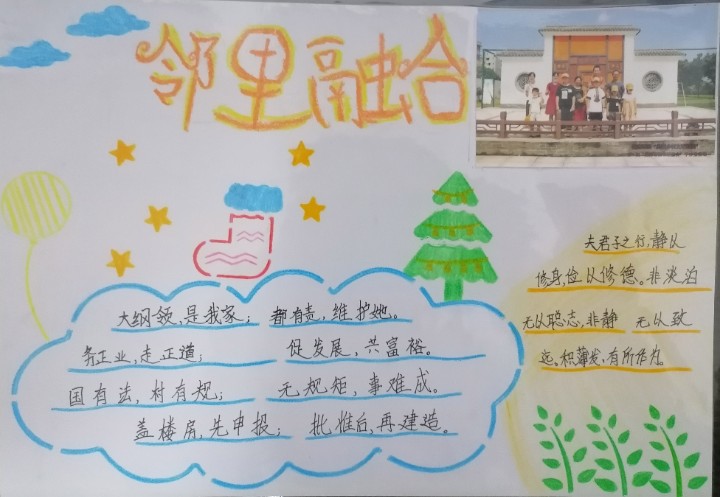 邻里融合
大纲领,是我家; 都有责,维护她。
务正业,走正道; 促发展,共富裕。
国有法,村有规; 无规矩,事难成。
盖楼房,先申报; 批准后,再建造。
夫君子之行,静以
修身,俭以修德。非淡泊
无以聪志,非静 无以致
远,积薄发,有所作为。